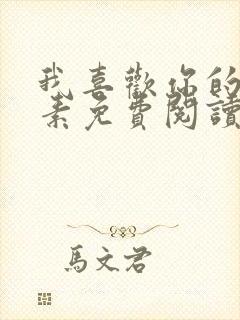 我喜歡你的
素免費閱讀
馬文君